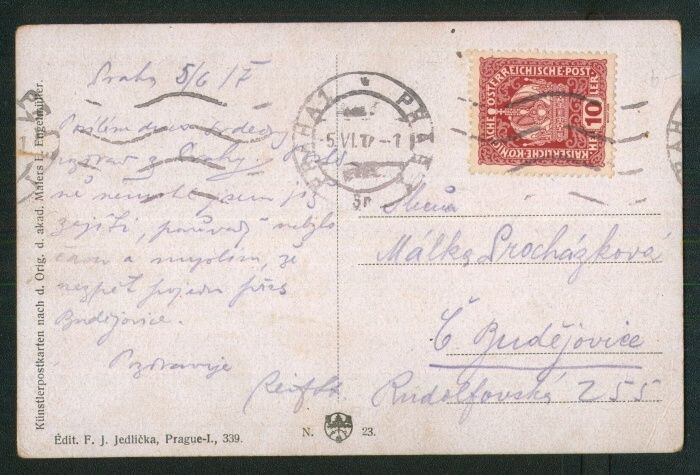 Praha 5/6 17
Posílám Vám srdečný
pozdrav z Prahy.
ně nemohl jsem již
zajíti, poněvadž nebylo
času a myslím, že
nazpět pojedu přes
Budějovice.
Pozdravuje
Slečna
Málka Procházková
Č Budějovice
Rudolfovská 255
PRAHA 1
PRAG 1
-5.VI.17-1
KAISERLICHE KÖNIGLICHE ÖSTERREICHISCHE POST
HELLER 10
Künstlerpostkarten nach d. Orig. d. akad. Malers I. Engelmüller.
Édit. F. J. Jedlička, Prague-I., 339.
N. 23.